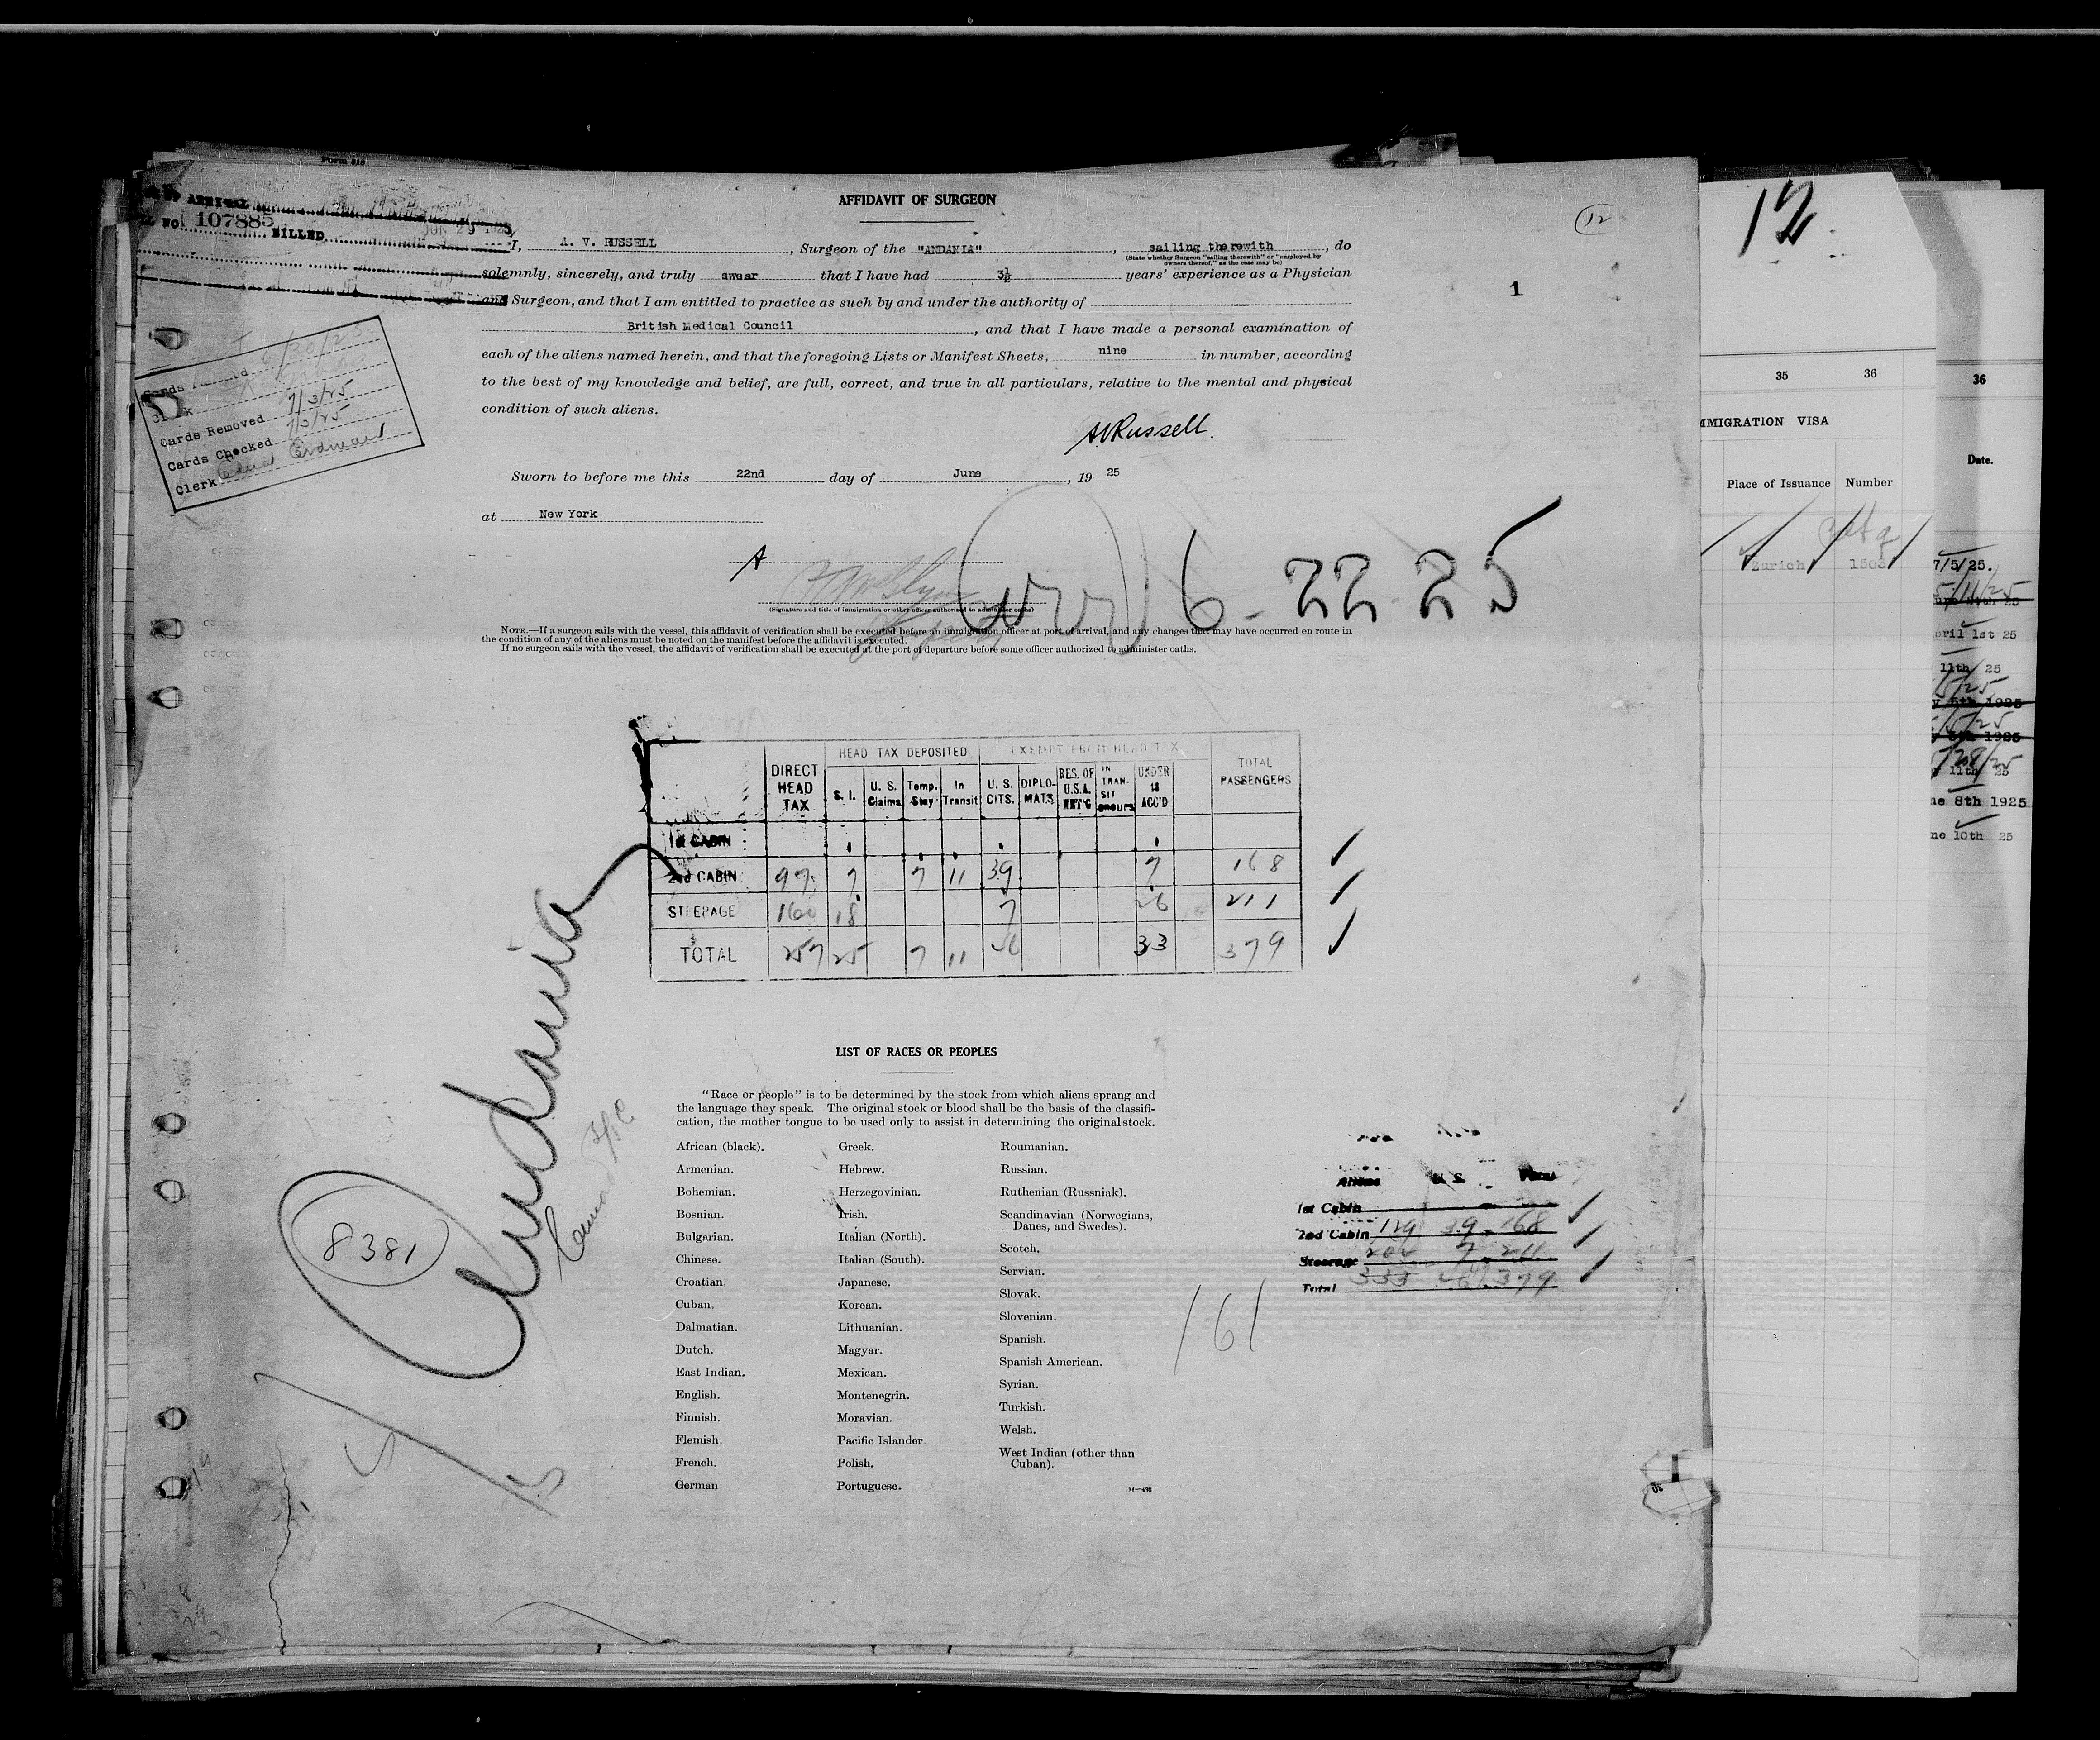 Form 618
AFFIDAVIT OF SURGEON
12
NO. 107885 BILLED JUN 29 1925
I, A. V. RUSSELL, Surgeon of the "ANDANIA", sailing therewith, do
(State whether Surgeon "sailing therewith" or "employed by
owners thereof," as the case may be)
solemnly, sincerely, and truly swear that I have had 3½ years' experience as a Physician
and Surgeon, and that I am entitled to practice as such by and under the authority of
British Medical Council, and that I have made a personal examination of
each of the aliens named herein, and that the foregoing Lists or Manifest Sheets, nine in number, according
to the best of my knowledge and belief, are full, correct, and true in all particulars, relative to the mental and physical
condition of such aliens.
1
AVRussell.
Sworn to before me this 22nd day of June, 19 25
at New York
6-22-25
(Signature and title of immigration or other officer authorized to administer oaths)
NOTE.—If a surgeon sails with the vessel, this affidavit of verification shall be executed before an immigration officer at port of arrival, and any changes that may have occurred en route in
the condition of any of the aliens must be noted on the manifest before the affidavit is executed.
If no surgeon sails with the vessel, the affidavit of verification shall be executed at the port of departure before some officer authorized to administer oaths.
Cards
Clerk
Cards Removed 7/3/25
Cards Checked 7/3/25
Clerk
HEAD TAX DEPOSITED EXEMPT FROM HEAD TAX
DIRECT HEAD TAX S. I. U. S. Claims Temp. Stay In Transit U. S. CITS. DIPLO-MATS RES. OF U.S.A. RET'G IN TRAN-SIT UNDER 16 ACC'D TOTAL PASSENGERS
1st CABIN
2nd CABIN 97 7 7 11 39 7 168
STEERAGE 160 18 7 26 211
TOTAL 257 25 7 11 46 33 379
Andania
8381
LIST OF RACES OR PEOPLES
"Race or people" is to be determined by the stock from which aliens sprang and
the language they speak. The original stock or blood shall be the basis of the classifi-
cation, the mother tongue to be used only to assist in determining the original stock.
African (black).
Armenian.
Bohemian.
Bosnian.
Bulgarian.
Chinese.
Croatian.
Cuban.
Dalmatian.
Dutch.
East Indian.
English.
Finnish.
Flemish.
French.
German
Greek.
Hebrew.
Herzegovinian.
Irish.
Italian (North).
Italian (South).
Japanese.
Korean.
Lithuanian.
Magyar.
Mexican.
Montenegrin.
Moravian.
Pacific Islander
Polish.
Portuguese.
Roumanian.
Russian.
Ruthenian (Russniak).
Scandinavian (Norwegians,
Danes, and Swedes).
Scotch.
Servian.
Slovak.
Slovenian.
Spanish.
Spanish American.
Syrian.
Turkish.
Welsh.
West Indian (other than
Cuban).
161
Aliens U. S.
1st Cabin
2nd Cabin 129 39 168
Steerage 7 211
Total 333 46 379
12
35 36
IMMIGRATION VISA
Place of Issuance Number
Zurich
36
Date.
7/5/25.
5/11/25
April 1st 25
11th 25
5th 1925
5th 1925
11th 25
8th 1925
10th 25